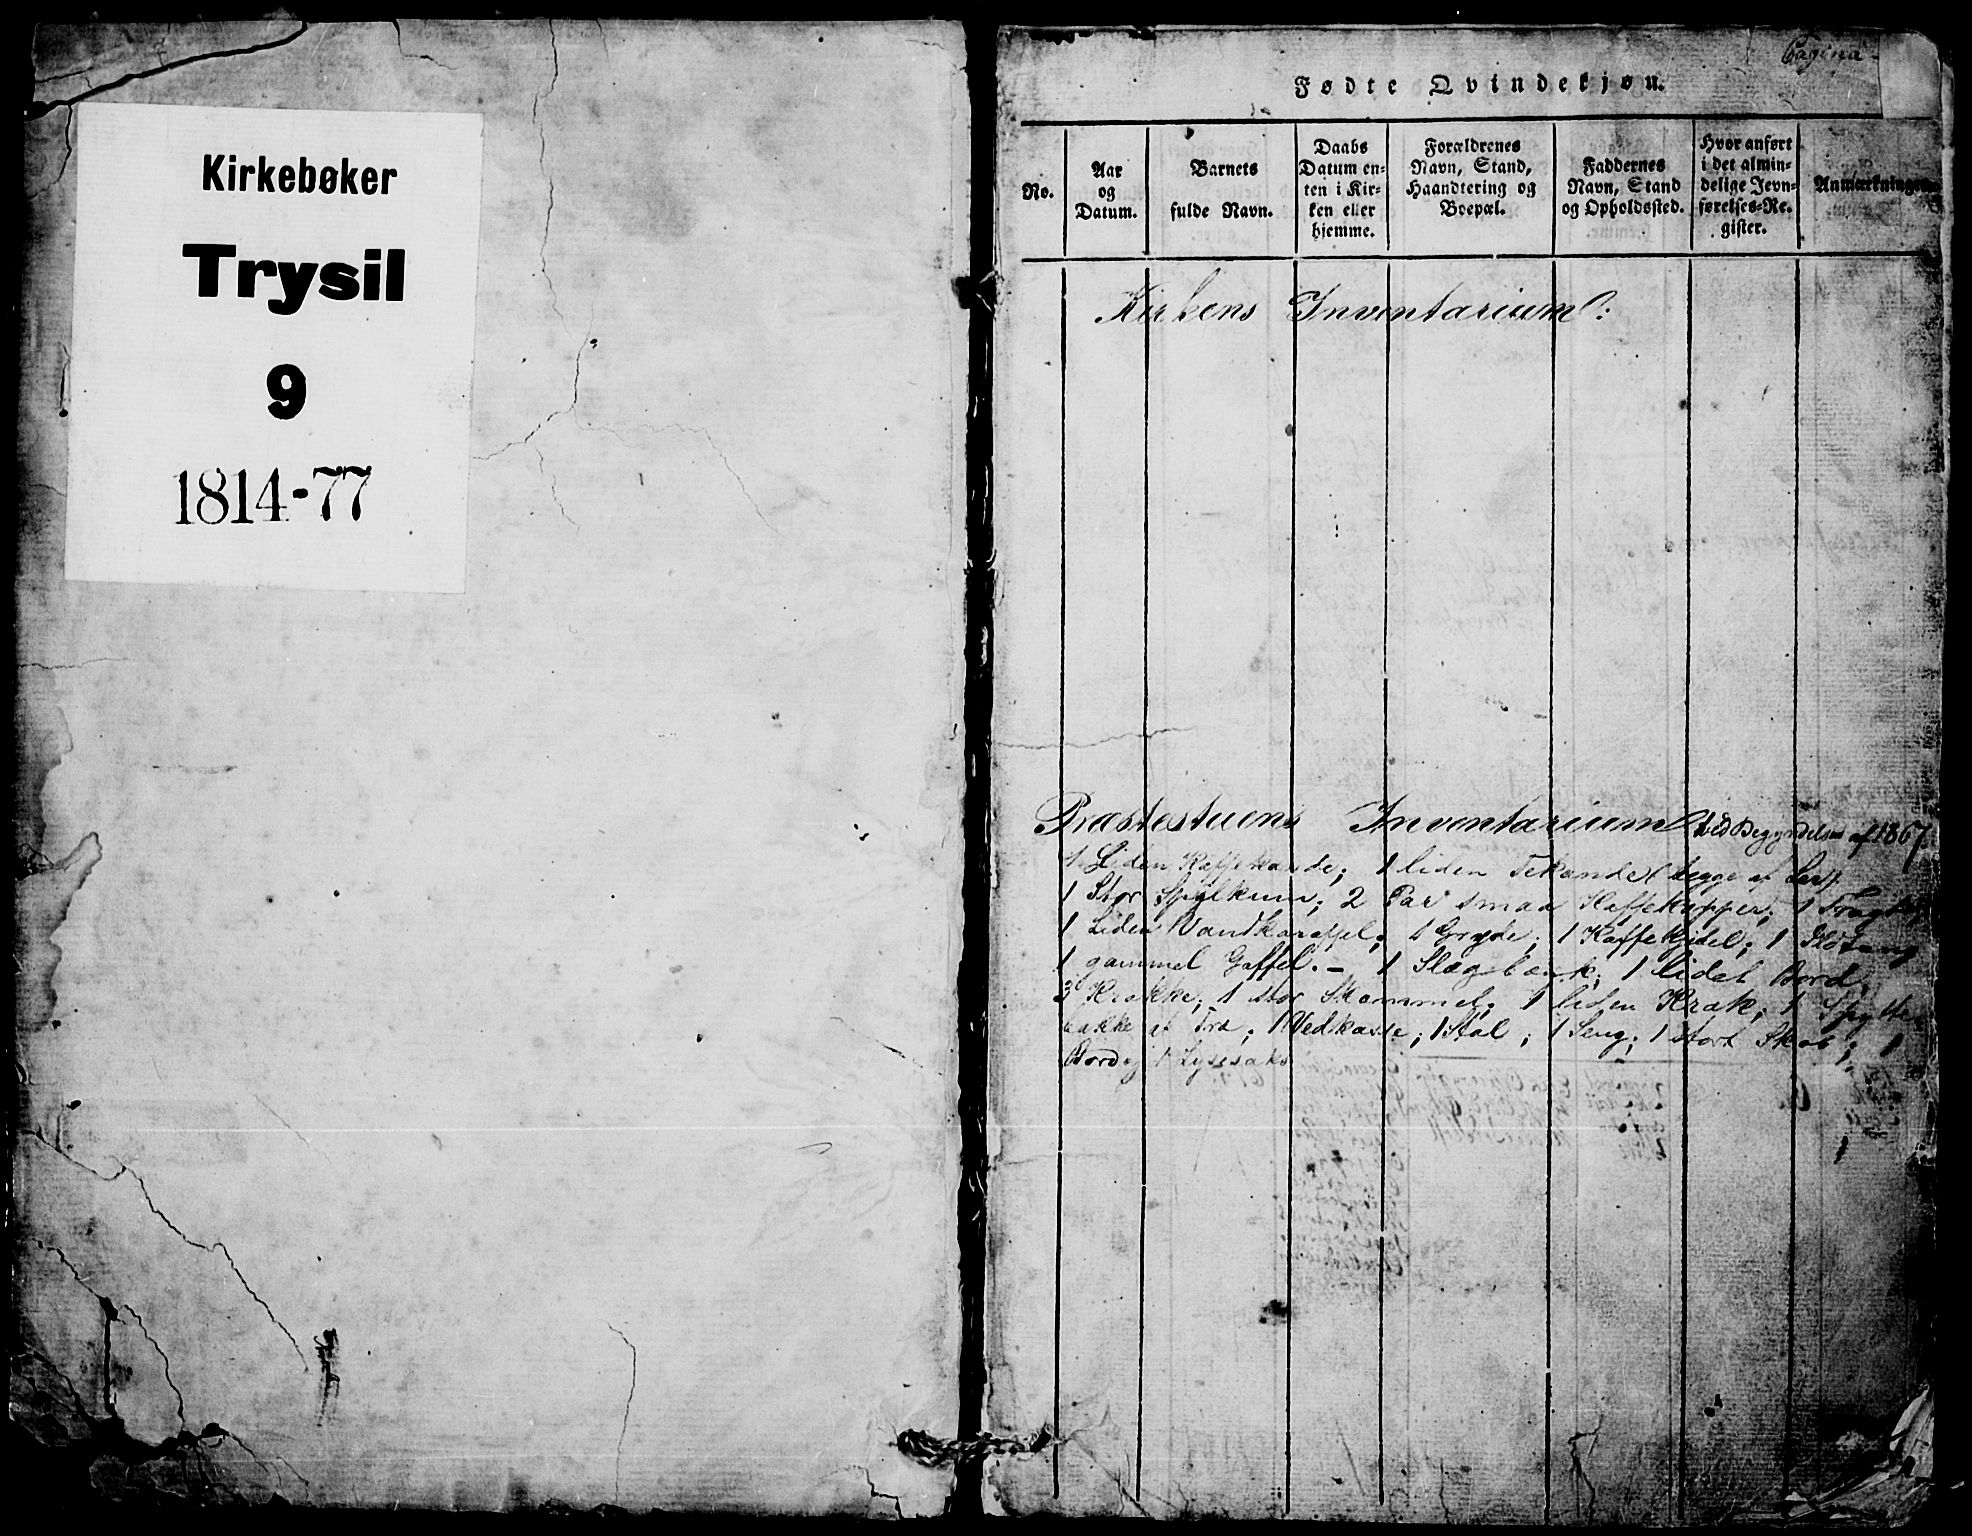 Kirkebøker
Trysil
9
1814-77
Pagina
Fødte Qvindekjøn.
No.
Aar
og
Datum.
Barnets
fulde Navn.
Daabs
Datum en-
ten i Kir-
ken eller
hjemme.
Forældrenes
Navn, Stand,
Haandtering og
Boepæl.
Faddernes
Navn, Stand
og Opholdssted.
Hvor anført
i det almin-
delige Jevn-
førelses-Re-
gister.
Anmærkninger.
Kirkens Inventarium:
Præstestuens Inventarium ved Begyndelsen af 1867
1 Liden Kaffekande; 1 liden Tekande begge af
1 Stor Spølkum; 2 Par smaa Kaffekopper; 1
1 Liden Vandkaraffel; 1 Gryde; 1 Kaffekjedel; 1 Ildtang
1 gammel Gaffel. – 1 Slagbænk; 1 lidet Bord;
3 Krakke; 1 stor Skammel; 1 liden Krak; 1 Spytte
bakke af Træ; 1 Vedkasse; 1 Stol; 1 Seng; 1 stort Skab; 1
Bord og 1 Lysesaks